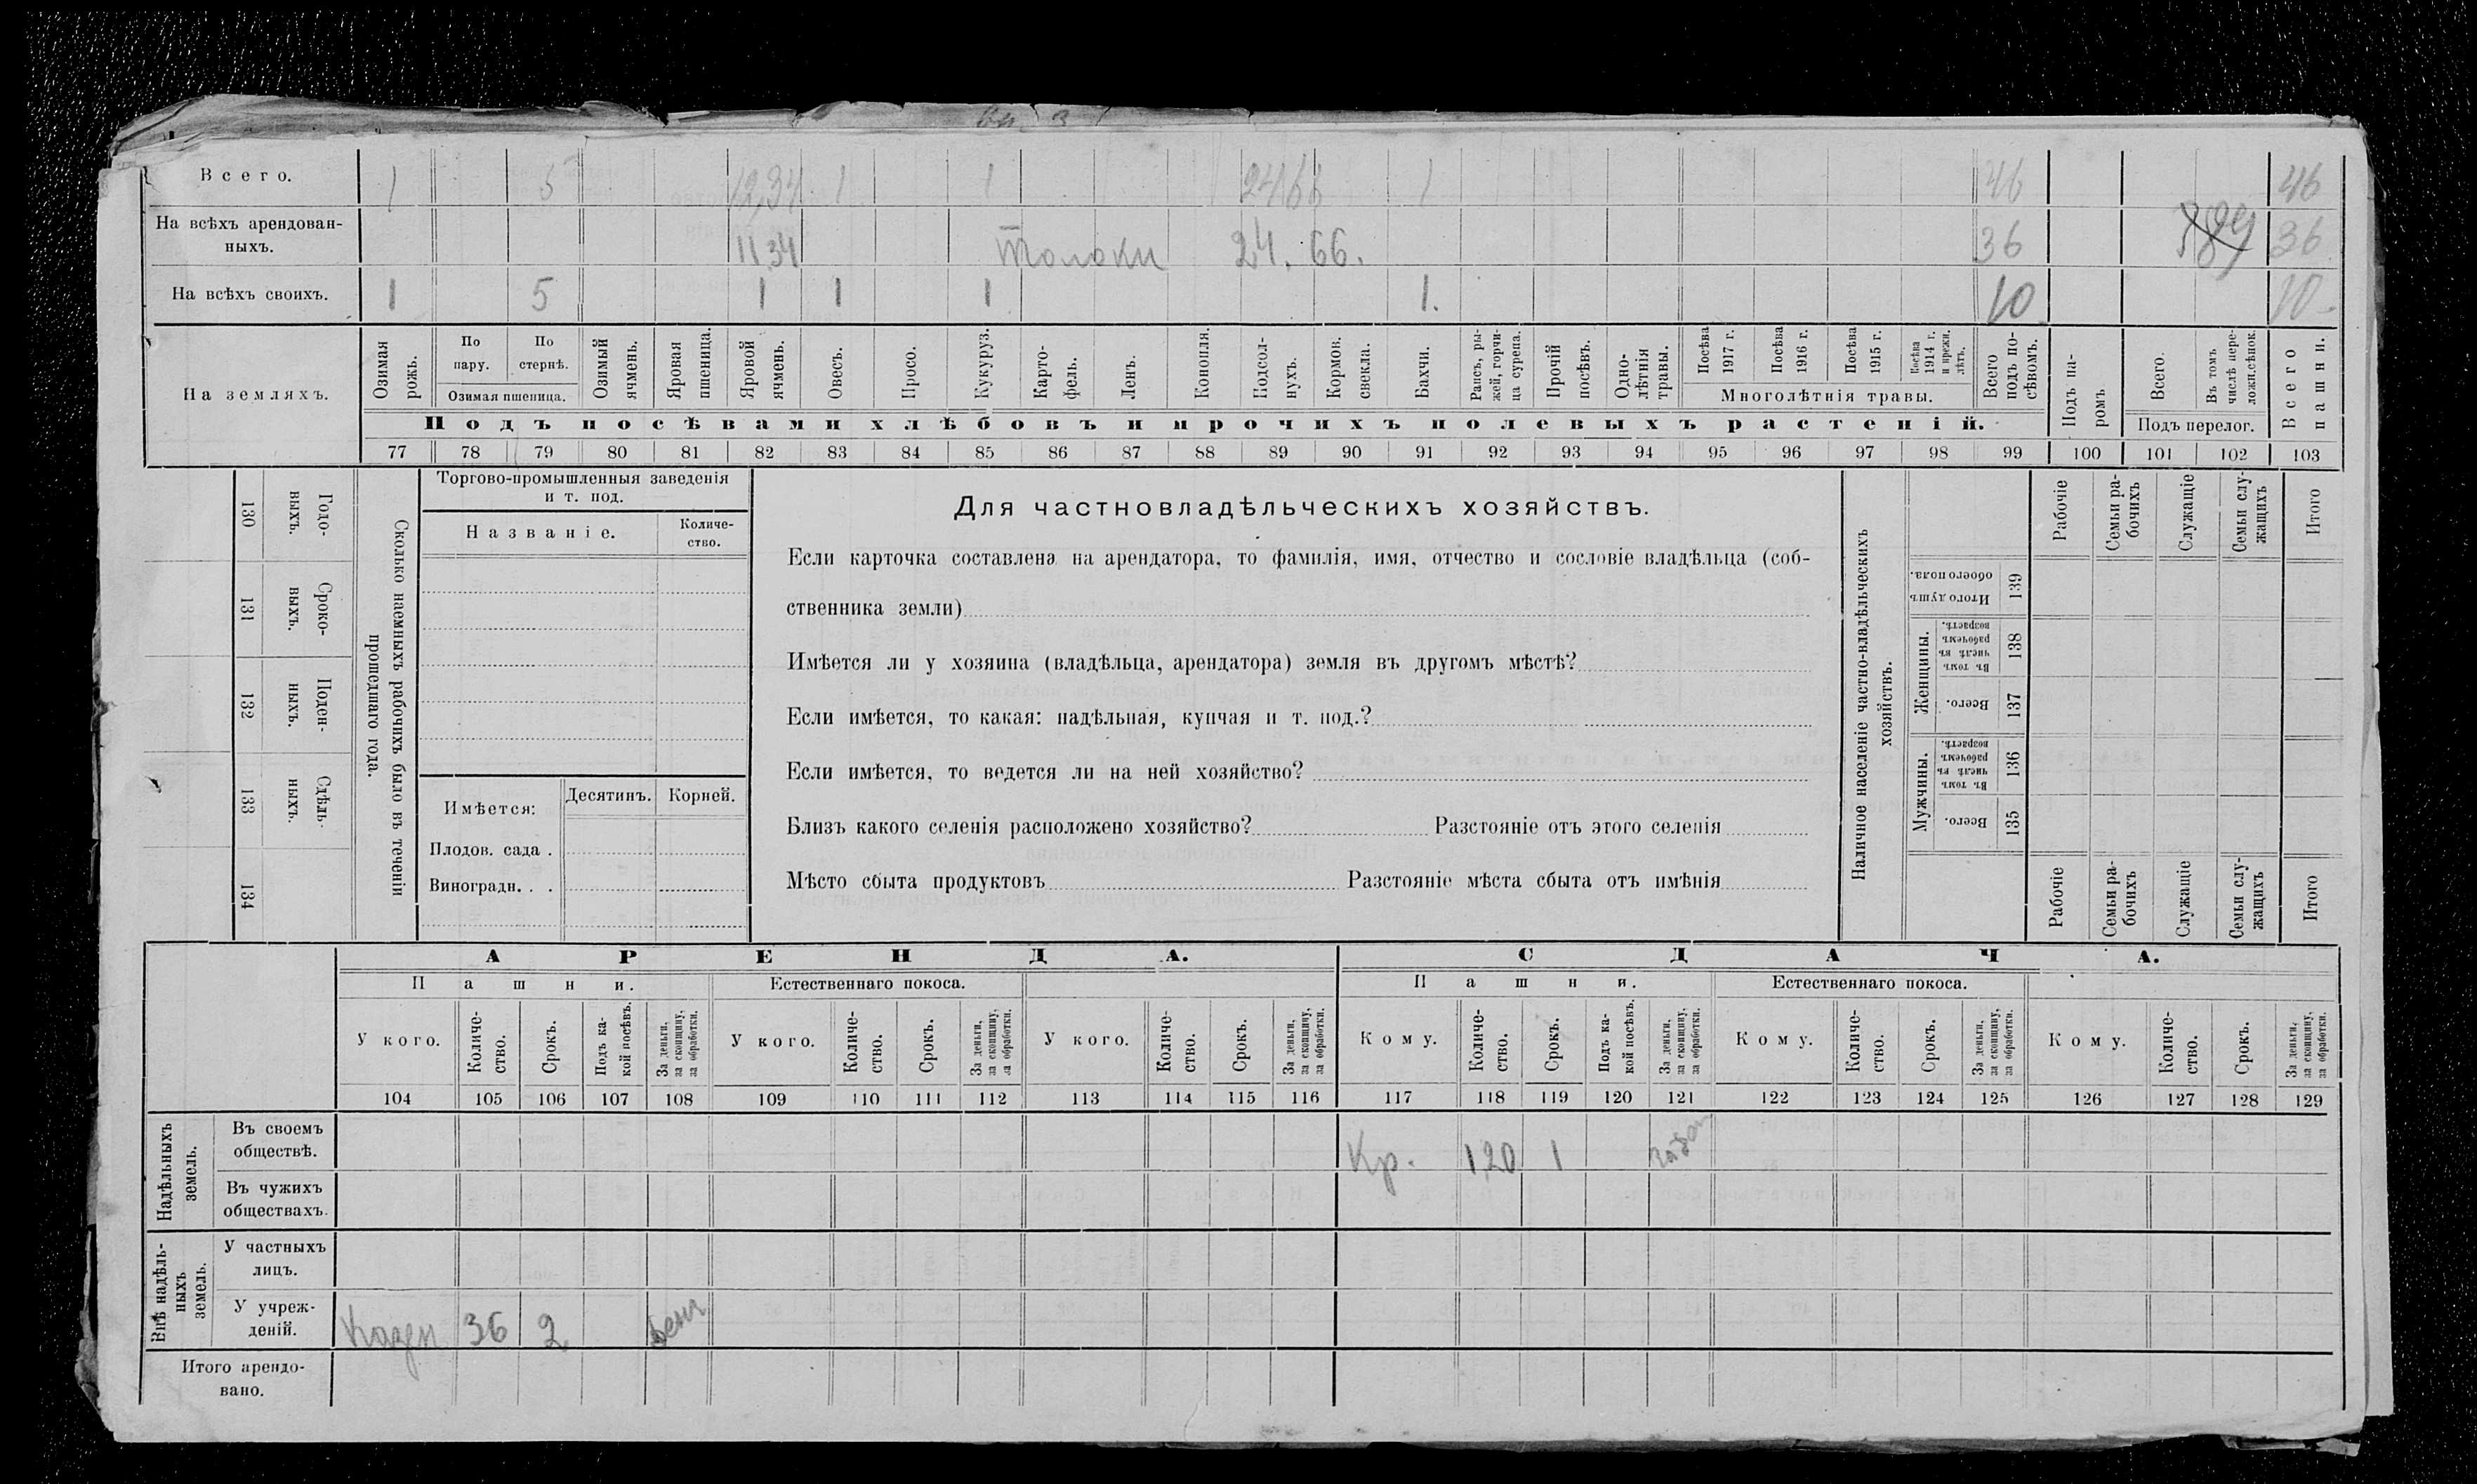 Всего. 1 5 12,34 1 1 24 66 1 46 46
На всѣхъ арендован-
ныхъ. 11 34 Толоки 24. 66. 36 36
На всѣхъ своихъ. 1 5 1 1 1 1. 10 10
На земляхъ.
Озимая рожь.
По пару.
По стернѣ.
Озимая пшеница.
Озимый ячмень.
Яровая пшеница.
Яровой ячмень.
Овесъ.
Просо.
Кукуруз.
Карто-
фель.
Ленъ.
Конопля.
Подсол-
нухъ.
Кормов. свекла.
Бахчи.
Рапсъ, ры-
жей, горчи-
ца сурепа.
Прочій посѣвъ.
Одно-
лѣтнія травы.
Посѣва 1917 г.
Посѣва 1916 г.
Посѣва 1915 г.
Посѣва 1914 г. и прежн. лѣтъ.
Многолѣтнія травы.
Всего подъ по-
сѣвомъ.
Подъ па-
ромъ
Всего.
Въ томъ числѣ пере-
ложн. сѣнок.
Подъ перелог.
Всего пашни.
Подъ посѣвами хлѣбовъ и прочихъ полевыхъ растеній.
77 78 79 80 81 82 83 84 85 86 87 88 89 90 91 92 93 94 95 96 97 98 99 100 101 102 103
130 131 132 133 134
Годо-
выхъ.
Сроко-
выхъ.
Поден-
ныхъ.
Сдѣль-
ныхъ.
Сколько наемныхъ рабочихъ было въ теченіи
прошедшаго года.
Торгово-промышленныя заведенія
и т. под.
Названіе.
Количе-
ство.
Имѣется:
Десятинъ. Корней.
Плодов. сада .
Виноградн. . .
Для частновладѣльческихъ хозяйствъ.
Если карточка составлена на арендатора, то фамилія, имя, отчество и сословіе владѣльца (соб-
ственника земли)
Имѣется ли у хозяина (владѣльца, арендатора) земля въ другомъ мѣстѣ?
Если имѣется, то какая: надѣльная, купчая и т. под.?
Если имѣется, то ведется ли на ней хозяйство?
Близъ какого селенія расположено хозяйство? Разстояніе отъ этого селенія
Мѣсто сбыта продуктовъ Разстояніе мѣста сбыта отъ имѣнія
Наличное населеніе частно-владѣльческихъ
хозяйствъ.
Рабочіе
Семьи ра-
бочихъ
Служащіе
Семьи слу-
жащихъ
Итого
Итого душъ обоего пола. 139
Женщины.
Въ томъ числѣ въ рабочемъ возрастѣ. 138
Всего. 137
Мужчины.
Въ томъ числѣ въ рабочемъ возрастѣ. 136
Всего. 135
Рабочіе
Семьи ра-
бочихъ
Служащіе
Семьи слу-
жащихъ
Итого
АРЕНДА. СДАЧА.
Пашни. Естественнаго покоса. Пашни. Естественнаго покоса.
У кого.
Количе-
ство.
Срокъ.
Подъ ка-
кой посѣвъ.
За деньги, за скопщину, за обработки.
У кого.
Количе-
ство.
Срокъ.
За деньги, за скопщину, за обработки.
У кого.
Количе-
ство.
Срокъ.
За деньги, за скопщину, за обработки.
Кому.
Количе-
ство.
Срокъ.
Подъ ка-
кой посѣвъ.
За деньги, за скопщину, за обработки.
Кому.
Количе-
ство.
Срокъ.
За деньги, за скопщину, за обработки.
Кому.
Количе-
ство.
Срокъ.
За деньги, за скопщину, за обработки.
104 105 106 107 108 109 110 111 112 113 114 115 116 117 118 119 120 121 122 123 124 125 126 127 128 129
Надѣльныхъ земель.
Въ своемъ
обществѣ. Кр. 1,20 1
Въ чужихъ
обществахъ.
Внѣ надѣль-
ныхъ земель.
У частныхъ
лицъ.
У учреж-
деній. Казен 36 2 день
Итого арендо-
вано.